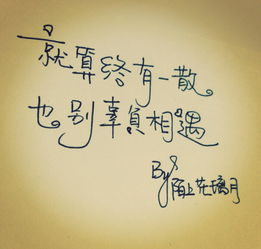 就算终有一散
也别辜負相遇
By 陌上花璃月